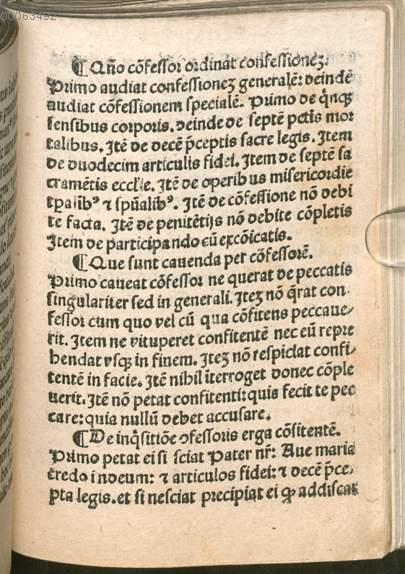 00063492
¶ Qño cõfessor ordinat confessionez.
Primo audiat confessionez generalē: deindē
audiat cõfessionem specialē. Primo de q̃nqʒ
sensibus corporis. deinde de septē pctis mor
talibus. Itē de decē p̃ceptis sacre legis. Item
de duodecim articulis fidei. Item de septē sa
cramētis ecclīe. Itē de operibus misericordie
tp̄alibꝰ ⁊ spūalibꝰ. Itē de cōfessione nō debi
te facta. Itē de penitētijs nō debite cōpletis
Item de participando cū excōicatis.
¶ Que sunt cauenda per cōfessorē.
Primo caueat cōfessor ne querat de peccatis
singulariter sed in generali. Itez nō q̄rat con
fessor cum quo vel cū qua cōfitens peccaue/
rit. Item ne vituperet confitentē nec eū repre
hendat vsqʒ in finem. Itez nō respiciat confi/
tentē in facie. Itē nihil īterroget donec cōple
uerit. Itē nō petat confitenti: quis fecit te pec
care: quia nullū debet accusare.
¶ De inq̄sitiōe ꝯfessoris erga cōfitentē.
Primo petat ei si sciat Pater nr̄: Aue maria
credo in deum: ⁊ articulos fidei: ⁊ decē p̄ce/
pta legis. et si nesciat precipiat ei ꝙ addiscat